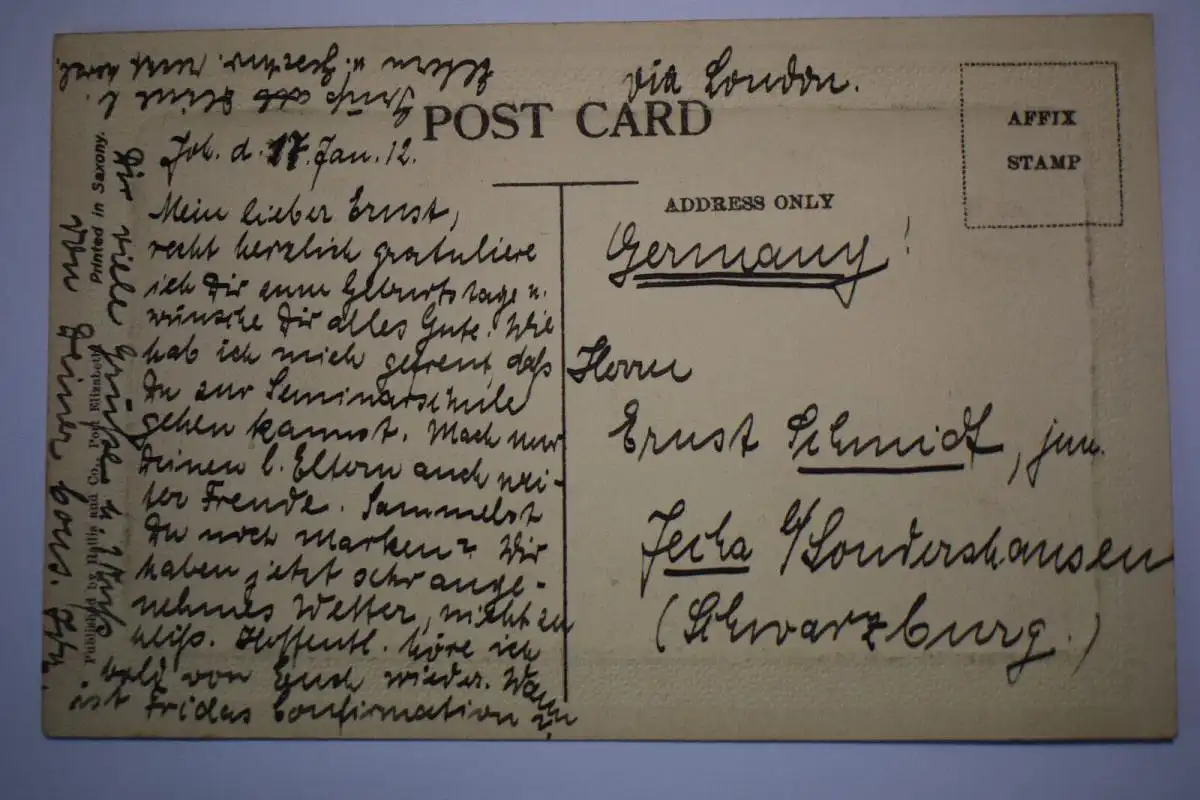 via London.
POST CARD
AFFIX
STAMP
ADDRESS ONLY
Germany!
Herrn
Ernst Schmidt, jun.
Jecha b/Sondershausen
(Schwarzburg.)
Job. d. 17. Jan. 12.
Mein lieber Ernst,
recht herzlich gratuliere
ich Dir zum Geburtstage u.
wünsche Dir alles Gute. Wie
hab ich mich gefreut, daß
Du zur Seminarschule
gehen kannst. Mach nur
Deinen l. Eltern auch wei-
ter Freude. Sammelst
Du noch Marken? Wir
haben jetzt sehr ange-
nehmes Wetter, nicht zu
heiß. Hoffentl. höre ich
bald von Euch wieder. Wann
ist Fridas Confirmation
Dir viele Grüße u. Kuss
von Deiner Cous.
Grüß Deine l.
Eltern u. Geschw. recht herzl.
Printed in Saxony.
Published by Hallis and Co., Port Elizabeth